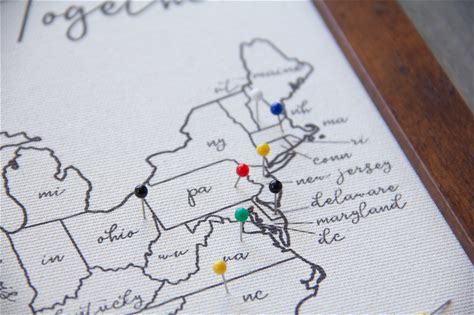 Together
maine
vt
nh
ma
ny
ri
conn
mi
pa
new jersey
delaware
ohio
maryland
in
wv
va
dc
nc